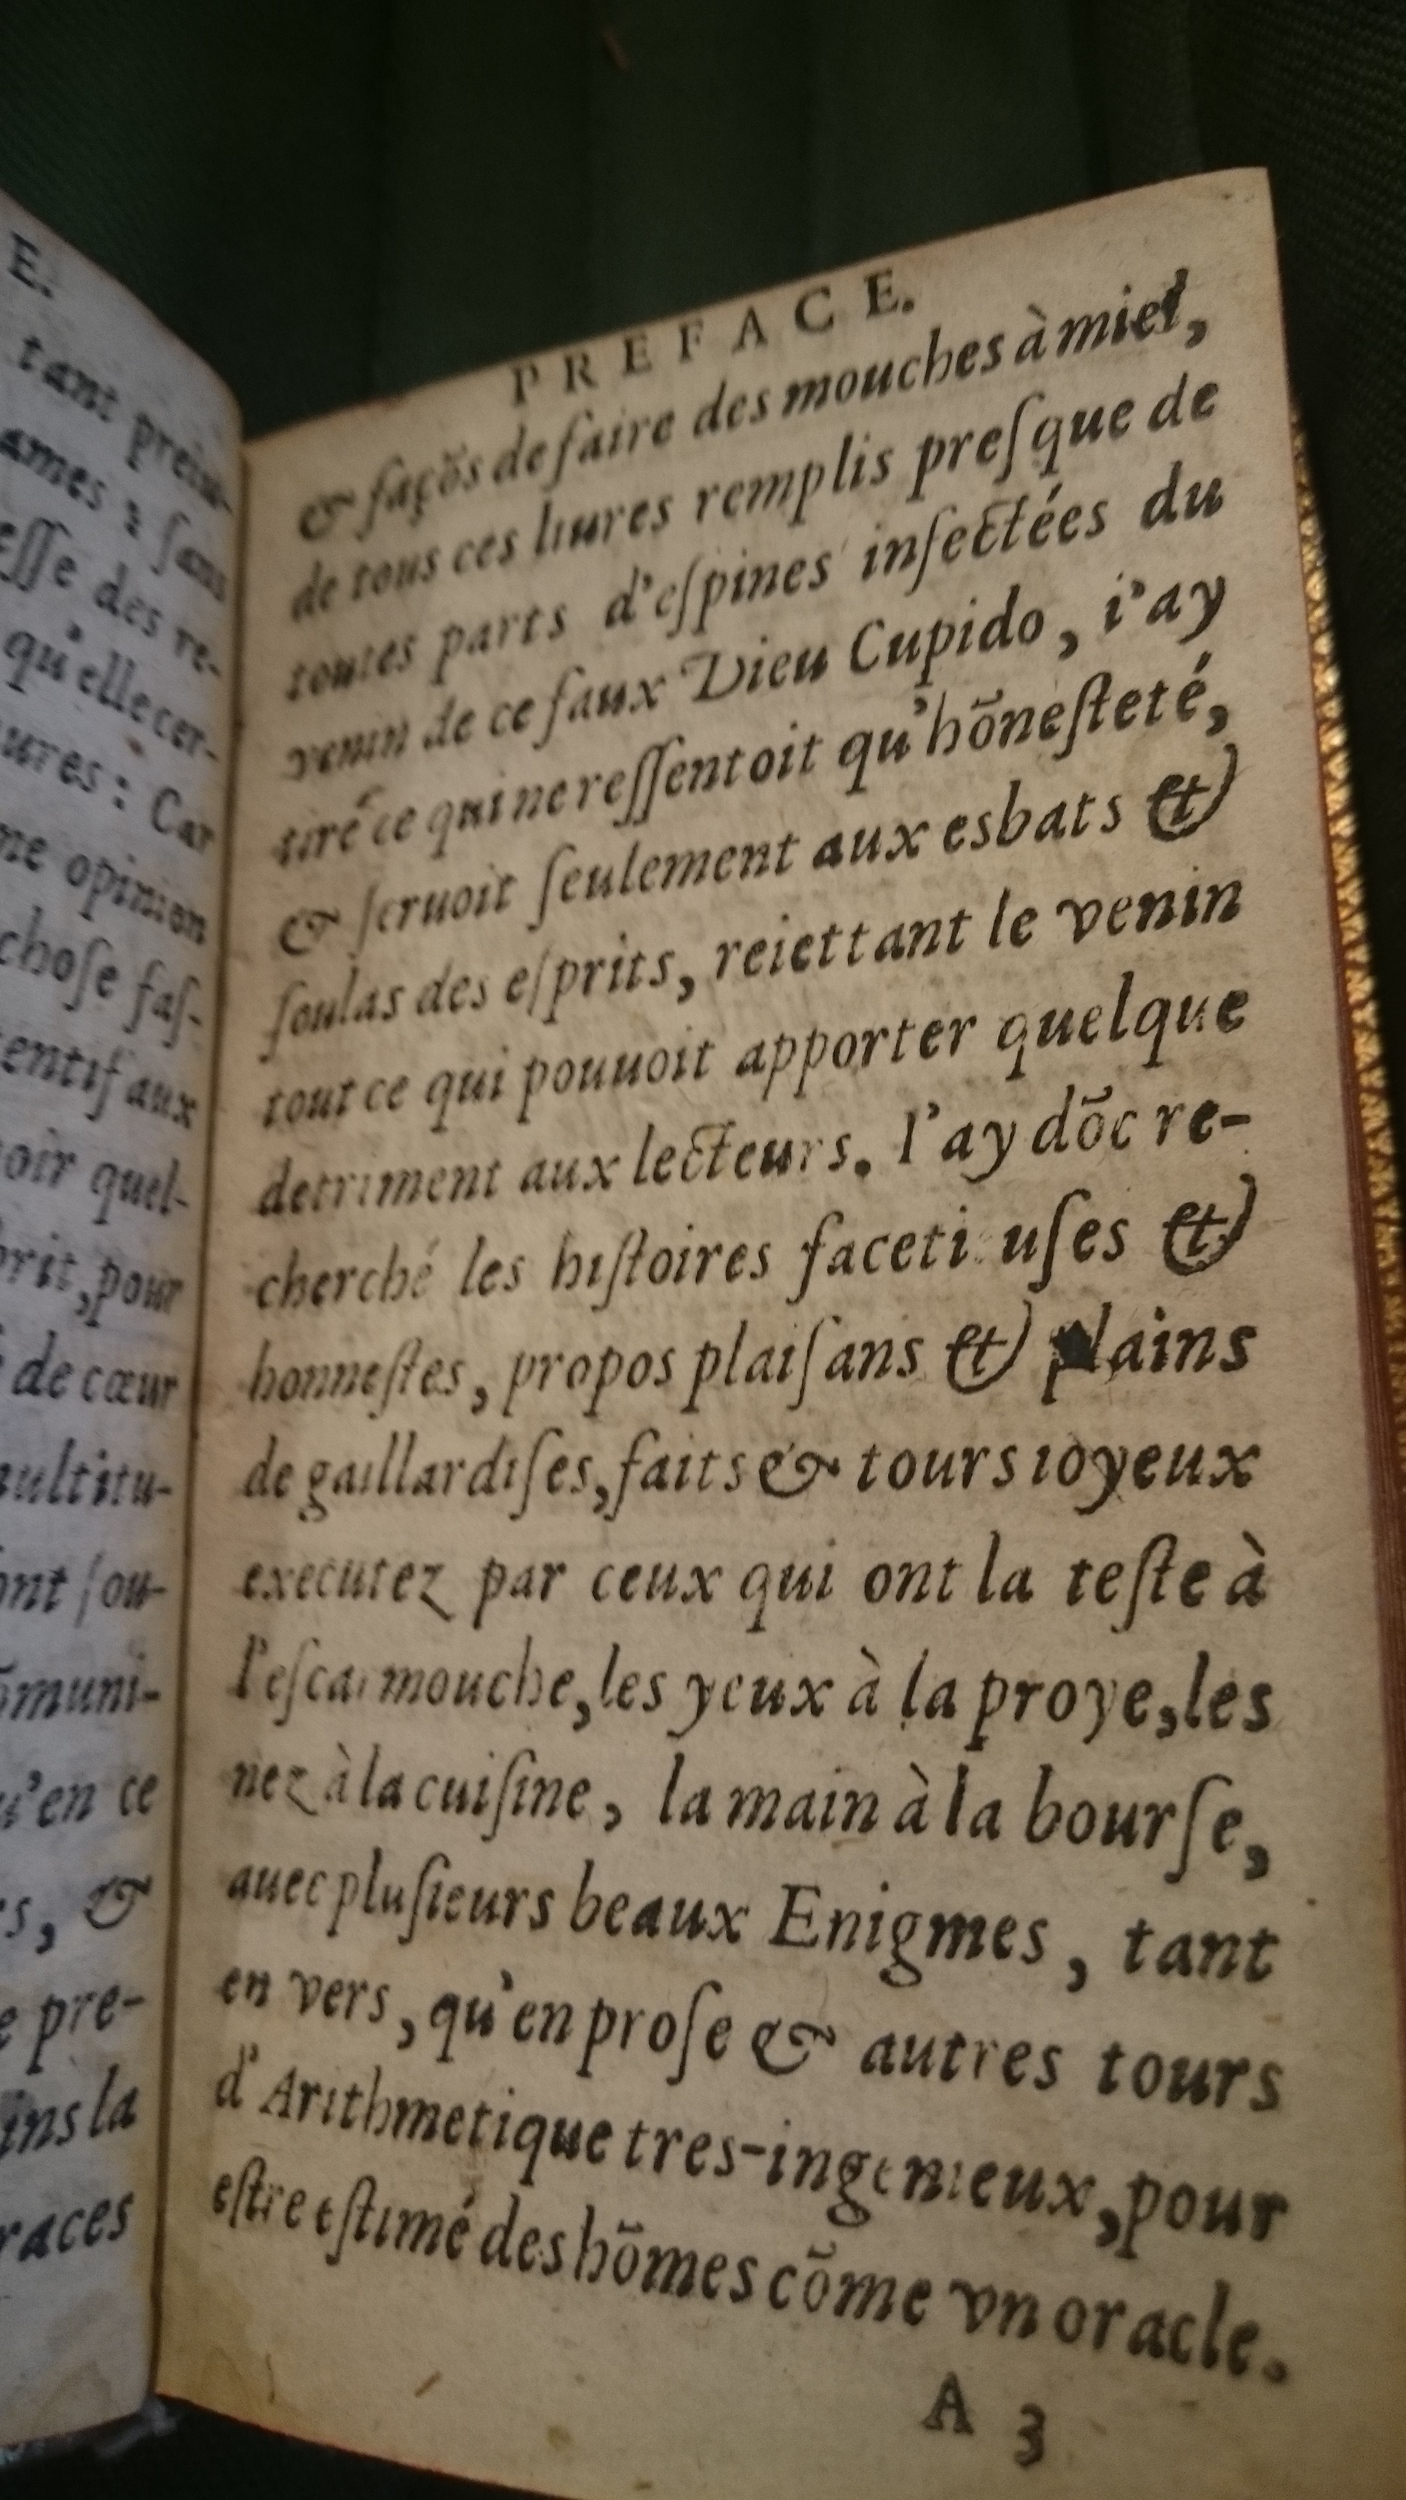 E.
tant
ames : ſans
eſſe des re-
qu'elle cer-
ures : Car
me opinion
choſe faſ-
tentif aux
oir quel-
prit, pour
de cœur
multitu-
ont ſou-
õmuni-
u'en ce
rs, &
e pre-
ins la
races
PREFACE.
& façõs de faire des mouches à miel,
de tous ces liures remplis preſque de
toutes parts d'eſpines infectées du
venin de ce faux Dieu Cupido, i'ay
tiré ce qui ne reſſentoit qu'hõneſteté,
& ſeruoit ſeulement aux esbats et
ſoulas des eſprits, reiettant le venin
tout ce qui pouuoit apporter quelque
detriment aux lecteurs. I'ay dõc re-
cherché les hiſtoires facetieuſes et
honneſtes, propos plaiſans et plains
de gaillardiſes, faits & tours ioyeux
executez par ceux qui ont la teſte à
l'eſcarmouche, les yeux à la proye, les
nez à la cuiſine, la main à la bourſe,
auec pluſieurs beaux Enigmes, tant
en vers, qu'en proſe & autres tours
d'Arithmetique tres-ingenieux, pour
eſtre eſtimé des hõmes cõme vn oracle.
A 3